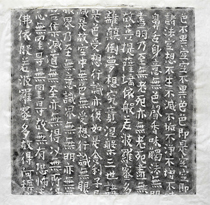 色不異空空不異色色即是空空即是
諸法空相不生不滅不垢不淨不增不
舌身意無色聲香味觸法無眼
盡乃至無老死亦無老死盡
故菩提薩埵依般若波羅蜜多
離顛倒夢想究竟涅槃三世諸
是受想行識亦復如是舍利子
是故空中無色無受想行識無
界乃至無意識界無無明亦無
無苦集滅道無智亦無得以無所得
心無罣礙無罣礙故無有恐
佛依般若波羅蜜多故得阿耨